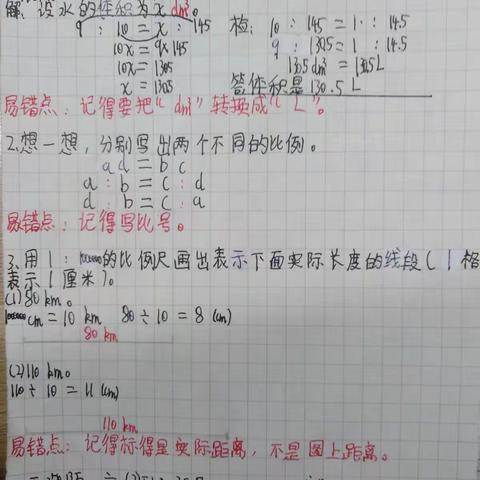 解：设水的体积为x dm³。
9 : 10 = x : 145 检：10 : 145 = 1 : 14.5
10x = 9×145 9 : 130.5 = 1 : 14.5
10x = 1305 130.5 dm³ = 130.5 L
x = 130.5 答：体积是130.5 L
易错点：记得要把“dm³”转换成“L”。
2.想一想，分别写出两个不同的比例。
ad = bc
a : b = c : d
d : b = c : a
易错点：记得写比号。
3.用1：的比例尺画出表示下面实际长度的线段（1格
表示1厘米）。
(1)80 km。
cm = 10 km 80÷10 = 8 (cm)
80 km
(2)110 km。
110÷10 = 11 (cm)
110 km
易错点：记得标得是实际距离，不是图上距离。